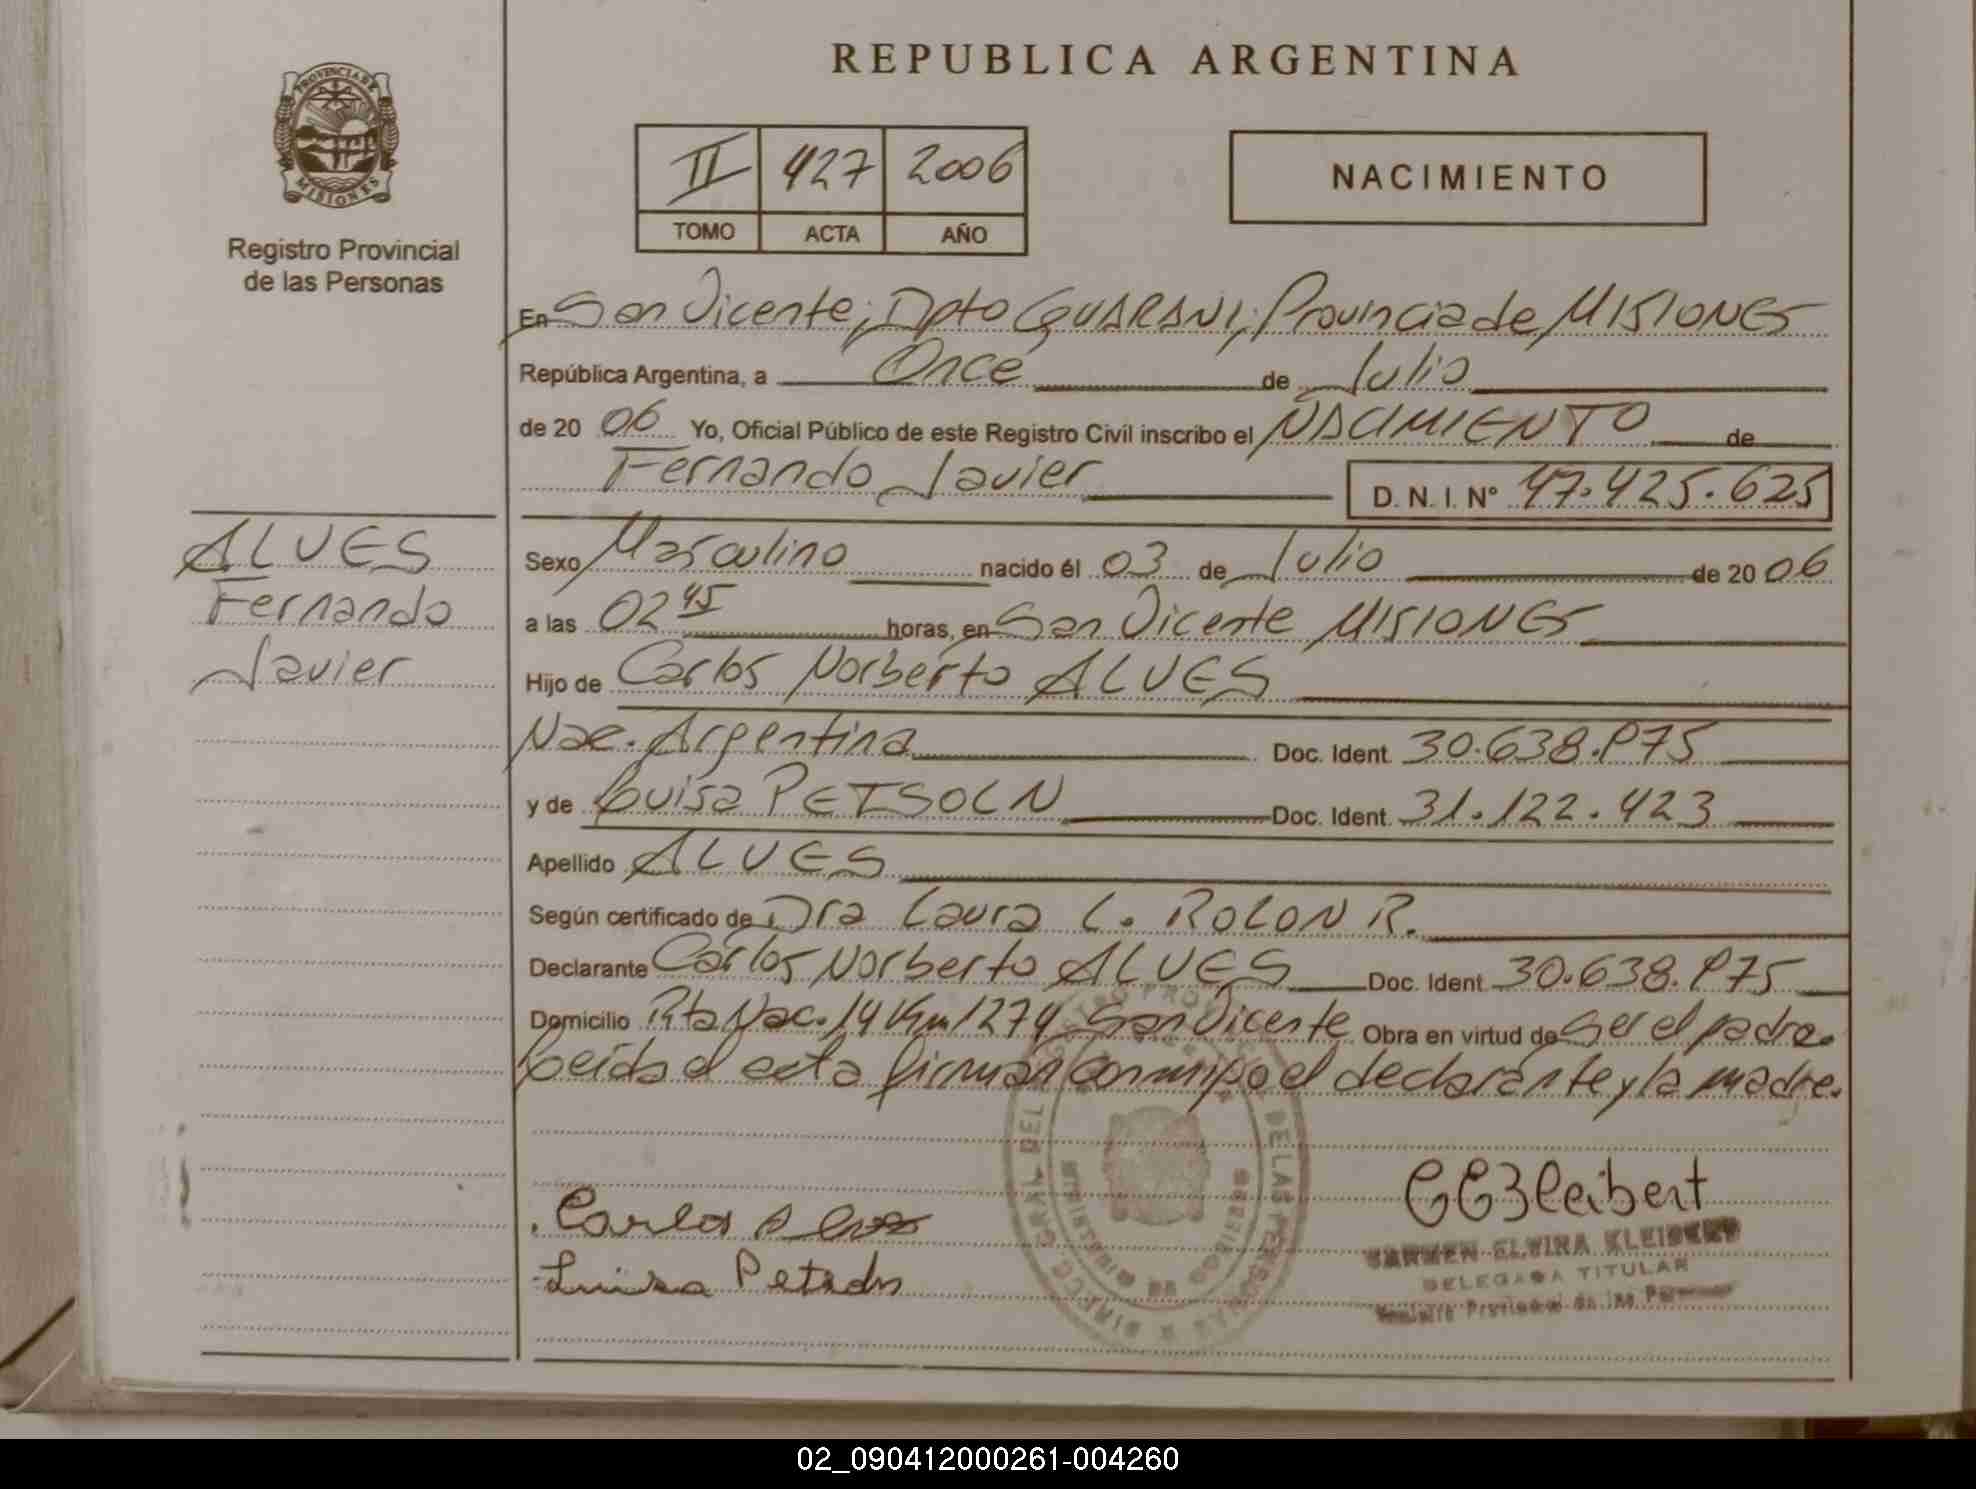 REPUBLICA ARGENTINA
PROVINCIA DE
MISIONES
Registro Provincial
de las Personas
II 427 2006
TOMO ACTA AÑO
NACIMIENTO
En San Vicente, Dpto GUARANI, Provincia de MISIONES
República Argentina, a Once de Julio
de 20 06 Yo, Oficial Público de este Registro Civil inscribo el NACIMIENTO de
Fernando Javier D. N. I. N° 47.425.625
ALVES
Fernando
Javier
Sexo Masculino nacido él 03 de Julio de 20 06
a las 02 45 horas, en San Vicente MISIONES
Hijo de Carlos Norberto ALVES
Nac. Argentina Doc. Ident. 30.638.975
y de Luisa Doc. Ident. 31.122.423
Apellido ALVES
Según certificado de Dra Laura L. ROLON R.
Declarante Carlos Norberto ALVES Doc. Ident. 30.638.975
Domicilio Rta Nac. 14 Km 1274 San Vicente Obra en virtud de Ser el padre.
Leída el acta firman conmigo el declarante y la madre.
Carlos Alves
Luisa
CARMEN ELVIRA KLEIBERT
DELEGADA TITULAR
Registro Provincial de las Personas
02_090412000261-004260